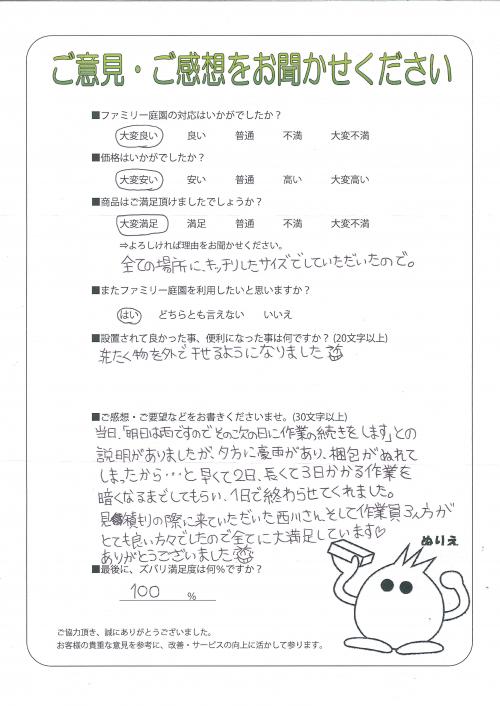 ご意見・ご感想をお聞かせください
■ファミリー庭園の対応はいかがでしたか？
大変良い 良い 普通 不満 大変不満
■価格はいかがでしたか？
大変安い 安い 普通 高い 大変高い
■商品はご満足頂けましたでしょうか？
大変満足 満足 普通 不満 大変不満
⇒よろしければ理由をお聞かせください。
全ての場所に、キッチリしたサイズでしていただいたので。
■またファミリー庭園を利用したいと思いますか？
はい どちらとも言えない いいえ
■設置されて良かった事、便利になった事は何ですか？(20文字以上)
洗たく物を外で干せるようになりました
■ご感想・ご要望などをお書きくださいませ。(30文字以上)
当日、「明日は雨ですのでその次の日に作業の続きをします」との
説明がありましたが、夕方に豪雨があり、梱包がぬれて
しまったから…と早くて2日、長くて3日かかる作業を
暗くなるまでしてもらい、1日で終わらせてくれました。
見積りの際に来ていただいた西川さん、そして作業員3人方が
とても良い方々でしたので全てに大満足しています♡
ありがとうございました
■最後に、ズバリ満足度は何％ですか？
100 %
ぬりえ
ご協力頂き、誠にありがとうございました。
お客様の貴重な意見を参考に、改善・サービスの向上に活かして参ります。